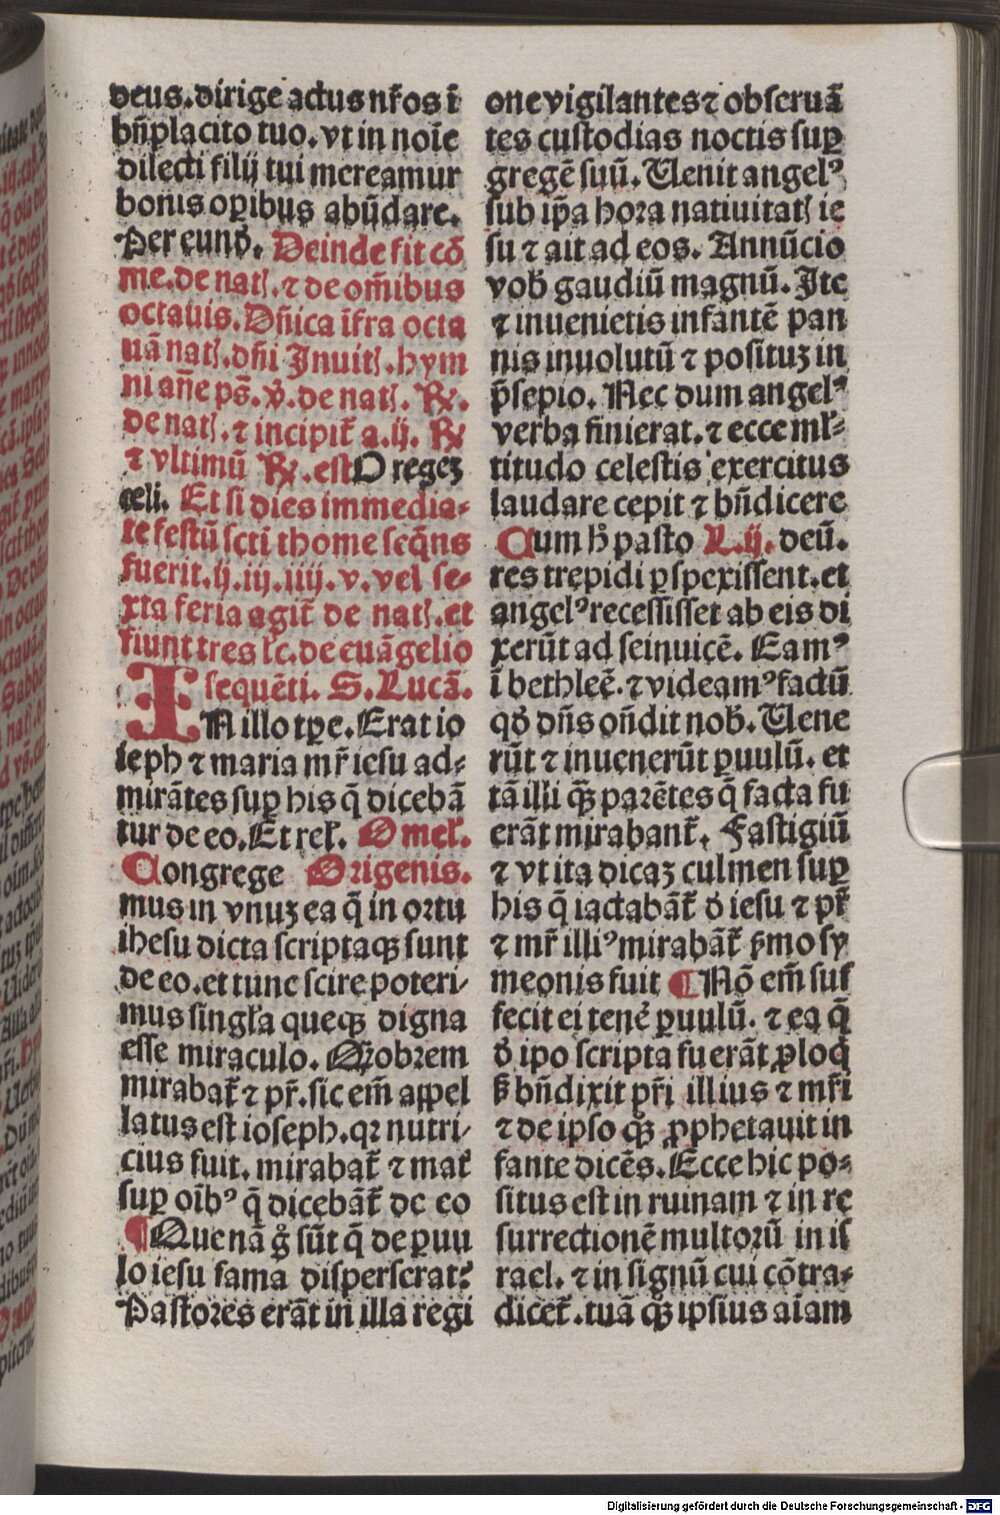 deus.dirige actus nr̄os ī
bn̄placito tuo.vt in noīe
dilecti filij tui mereamur
bonis oꝑibus abūdare.
Per eund̄. Deinde fit cō
me.de natꝭ.⁊ de om̄ibus
octauis.Dn̄ica īfra octa
uā natꝭ.dn̄i Inuitꝭ.hym
ni an̄e ps̄.v̄.de natꝭ. ℞.
de natꝭ.⁊ incipit̄ a.ij. ℞
⁊ vltimū ℞.est O regeꝫ
celi. Et si dies immedia⸗
te festū scti thome seq̄ns
fuerit.ij.iij.iiij.v.vel se⸗
xta feria agit̄ de natꝭ.et
fiunt tres lc̄.de euāgelio
sequēti. S. Lucā.
IN illo tꝑe.Erat io
seph ⁊ maria mr̄ iesu ad⸗
mirātes suꝑ his q̄ dicebā
tur de eo.Et rel̄. Omel̄.
Congrege Origenis.
mus in vnuꝫ ea q̄ in ortu
ihesu dicta scriptaqꝫ sunt
de eo.et tunc scire poteri⸗
mus singl̄a queqꝫ digna
esse miraculo. Qꝫobrem
mirabat̄ ⁊ pr̄.sic em̄ appel
latus est ioseph.qꝛ nutri⸗
cius fuit. mirabat̄ ⁊ mat̄
suꝑ oīb⁹ q̄ dicebāt̄ de eo
¶Quenā g̊ sūt q̄ de ꝑuu
lo iesu fama disperserat?
Pastores erāt in illa regi
one vigilantes ⁊ obseruā
tes custodias noctis suꝑ
gregē suū. Uenit angel⁹
sub ip̄a hora natiuitatꝭ ie
su ⁊ ait ad eos. Annūcio
vob̄ gaudiū magnū. Ite
⁊ inuenietis infantē pan
nis inuolutū ⁊ posituꝫ in
p̄sepio. Nec dum angel⁹
verba finierat.⁊ ecce ml̄⸗
titudo celestis exercitus
laudare cepit ⁊ bn̄dicere
Cum h̄ pasto L.ij. deū.
res trepidi ꝑspexissent.et
angel⁹ recessisset ab eis di
xerūt ad seinuicē. Eam⁹
ī bethleē.⁊ videam⁹ factū
qd̄ dn̄s on̄dit nob̄. Uene
rūt ⁊ inuenerūt ꝑuulū. et
tā illi qꝫ parētes q̄ facta fu
erāt mirabant̄. Fastigiū
⁊ vt ita dicaꝫ culmen suꝑ
his q̄ iactabāt̄ d̄ iesu ⁊ pr̄
⁊ mr̄ illi⁹ mirabāt̄ ẜmo sy
meonis fuit ¶Nō em̄ suf
fecit ei tenē ꝑuulū. ⁊ ea q̄
d̄ ipo scripta fuerāt ꝓloq̄
ẜ bn̄dixit pr̄i illius ⁊ mr̄i
⁊ de ipso qꝫ ꝓphetauit in
fante dicēs.Ecce hic po⸗
situs est in ruinam ⁊ in re
surrectionē multorū in is
rael. ⁊ in signū cui cōtra⸗
dicet̄.tuā qꝫ ipsius aīam
Digitalisierung gefördert durch die Deutsche Forschungsgemeinschaft - DFG